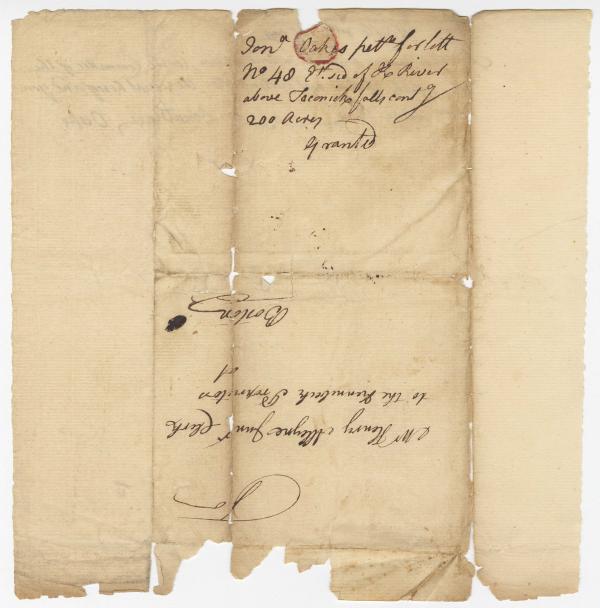 Jonª Oakes petⁿ for lott
No 48 Eᵗ sid of K River
above Taconick falls contᵍ
200 Acres
Granted
To
Mʳ Henry Alleyne Junʳ Clerk
to the Kennebeck Proprietors
at
Boston